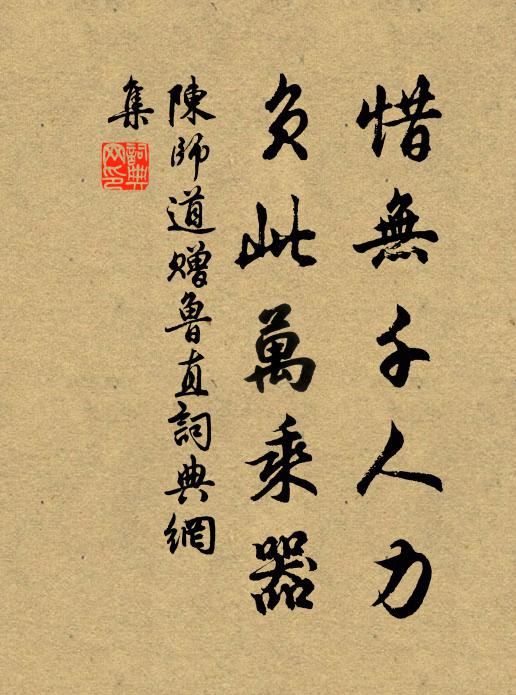 惜無千人力
負此萬乘器
陳師道贈魯直詞典網
集
詞典
網印